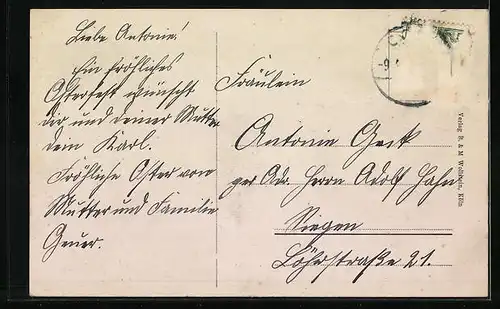 Liebe Antonie!
Ein fröhliches
Osterfest wünscht
dir und deiner Mutter
dein Karl.
Fröhliche Ostern von
Mutter und Familie
Geuer.
Fräulein
Antonie Geck
per Adr. Herrn Adolf Hahn
Siegen
Löhrstraße 21.
Verlag R. & M.
Köln